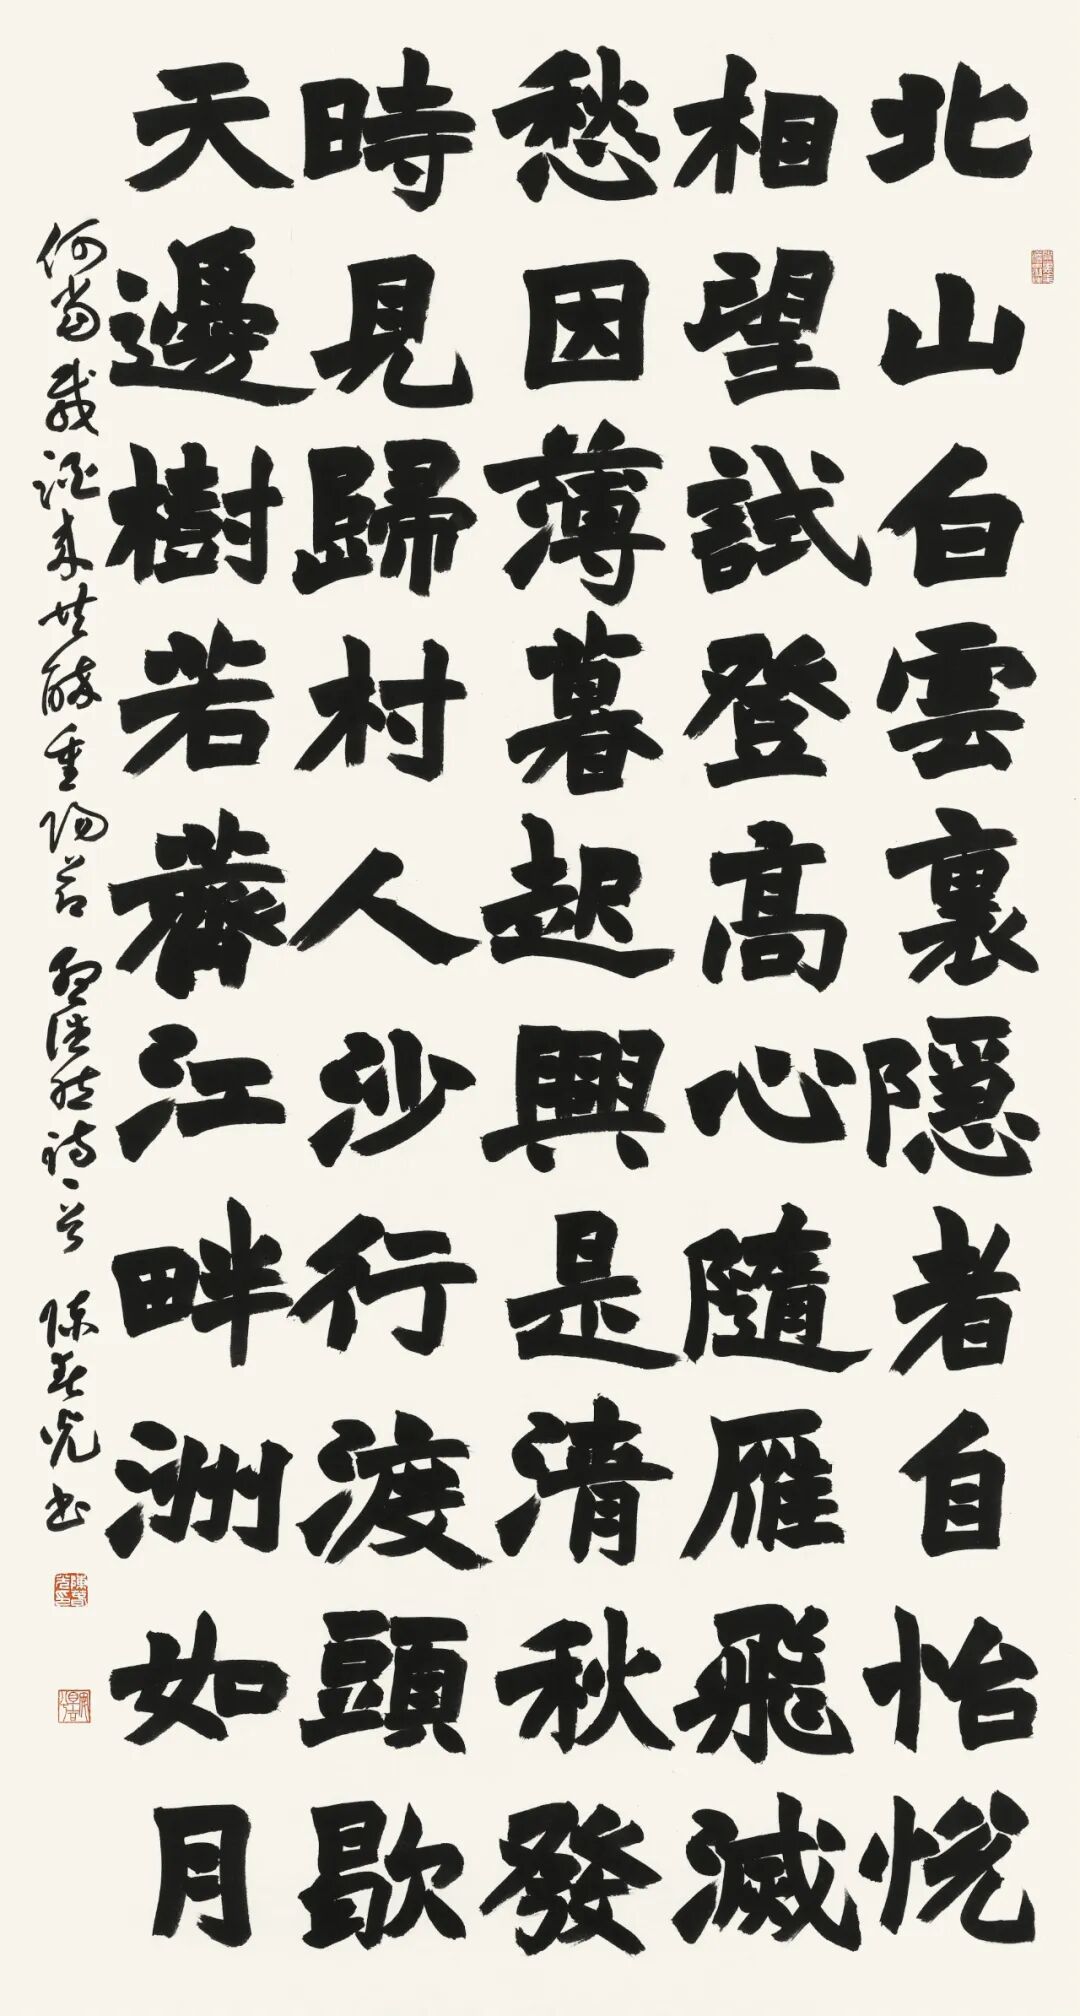 北山白雲裏隱者自怡悅
相望試登高心隨雁飛滅
愁因薄暮起興是清秋發
時見歸村人沙行渡頭歇
天邊樹若薺江畔洲如月
何當載酒來共醉重陽節 孟浩然詩一首 陈春光书